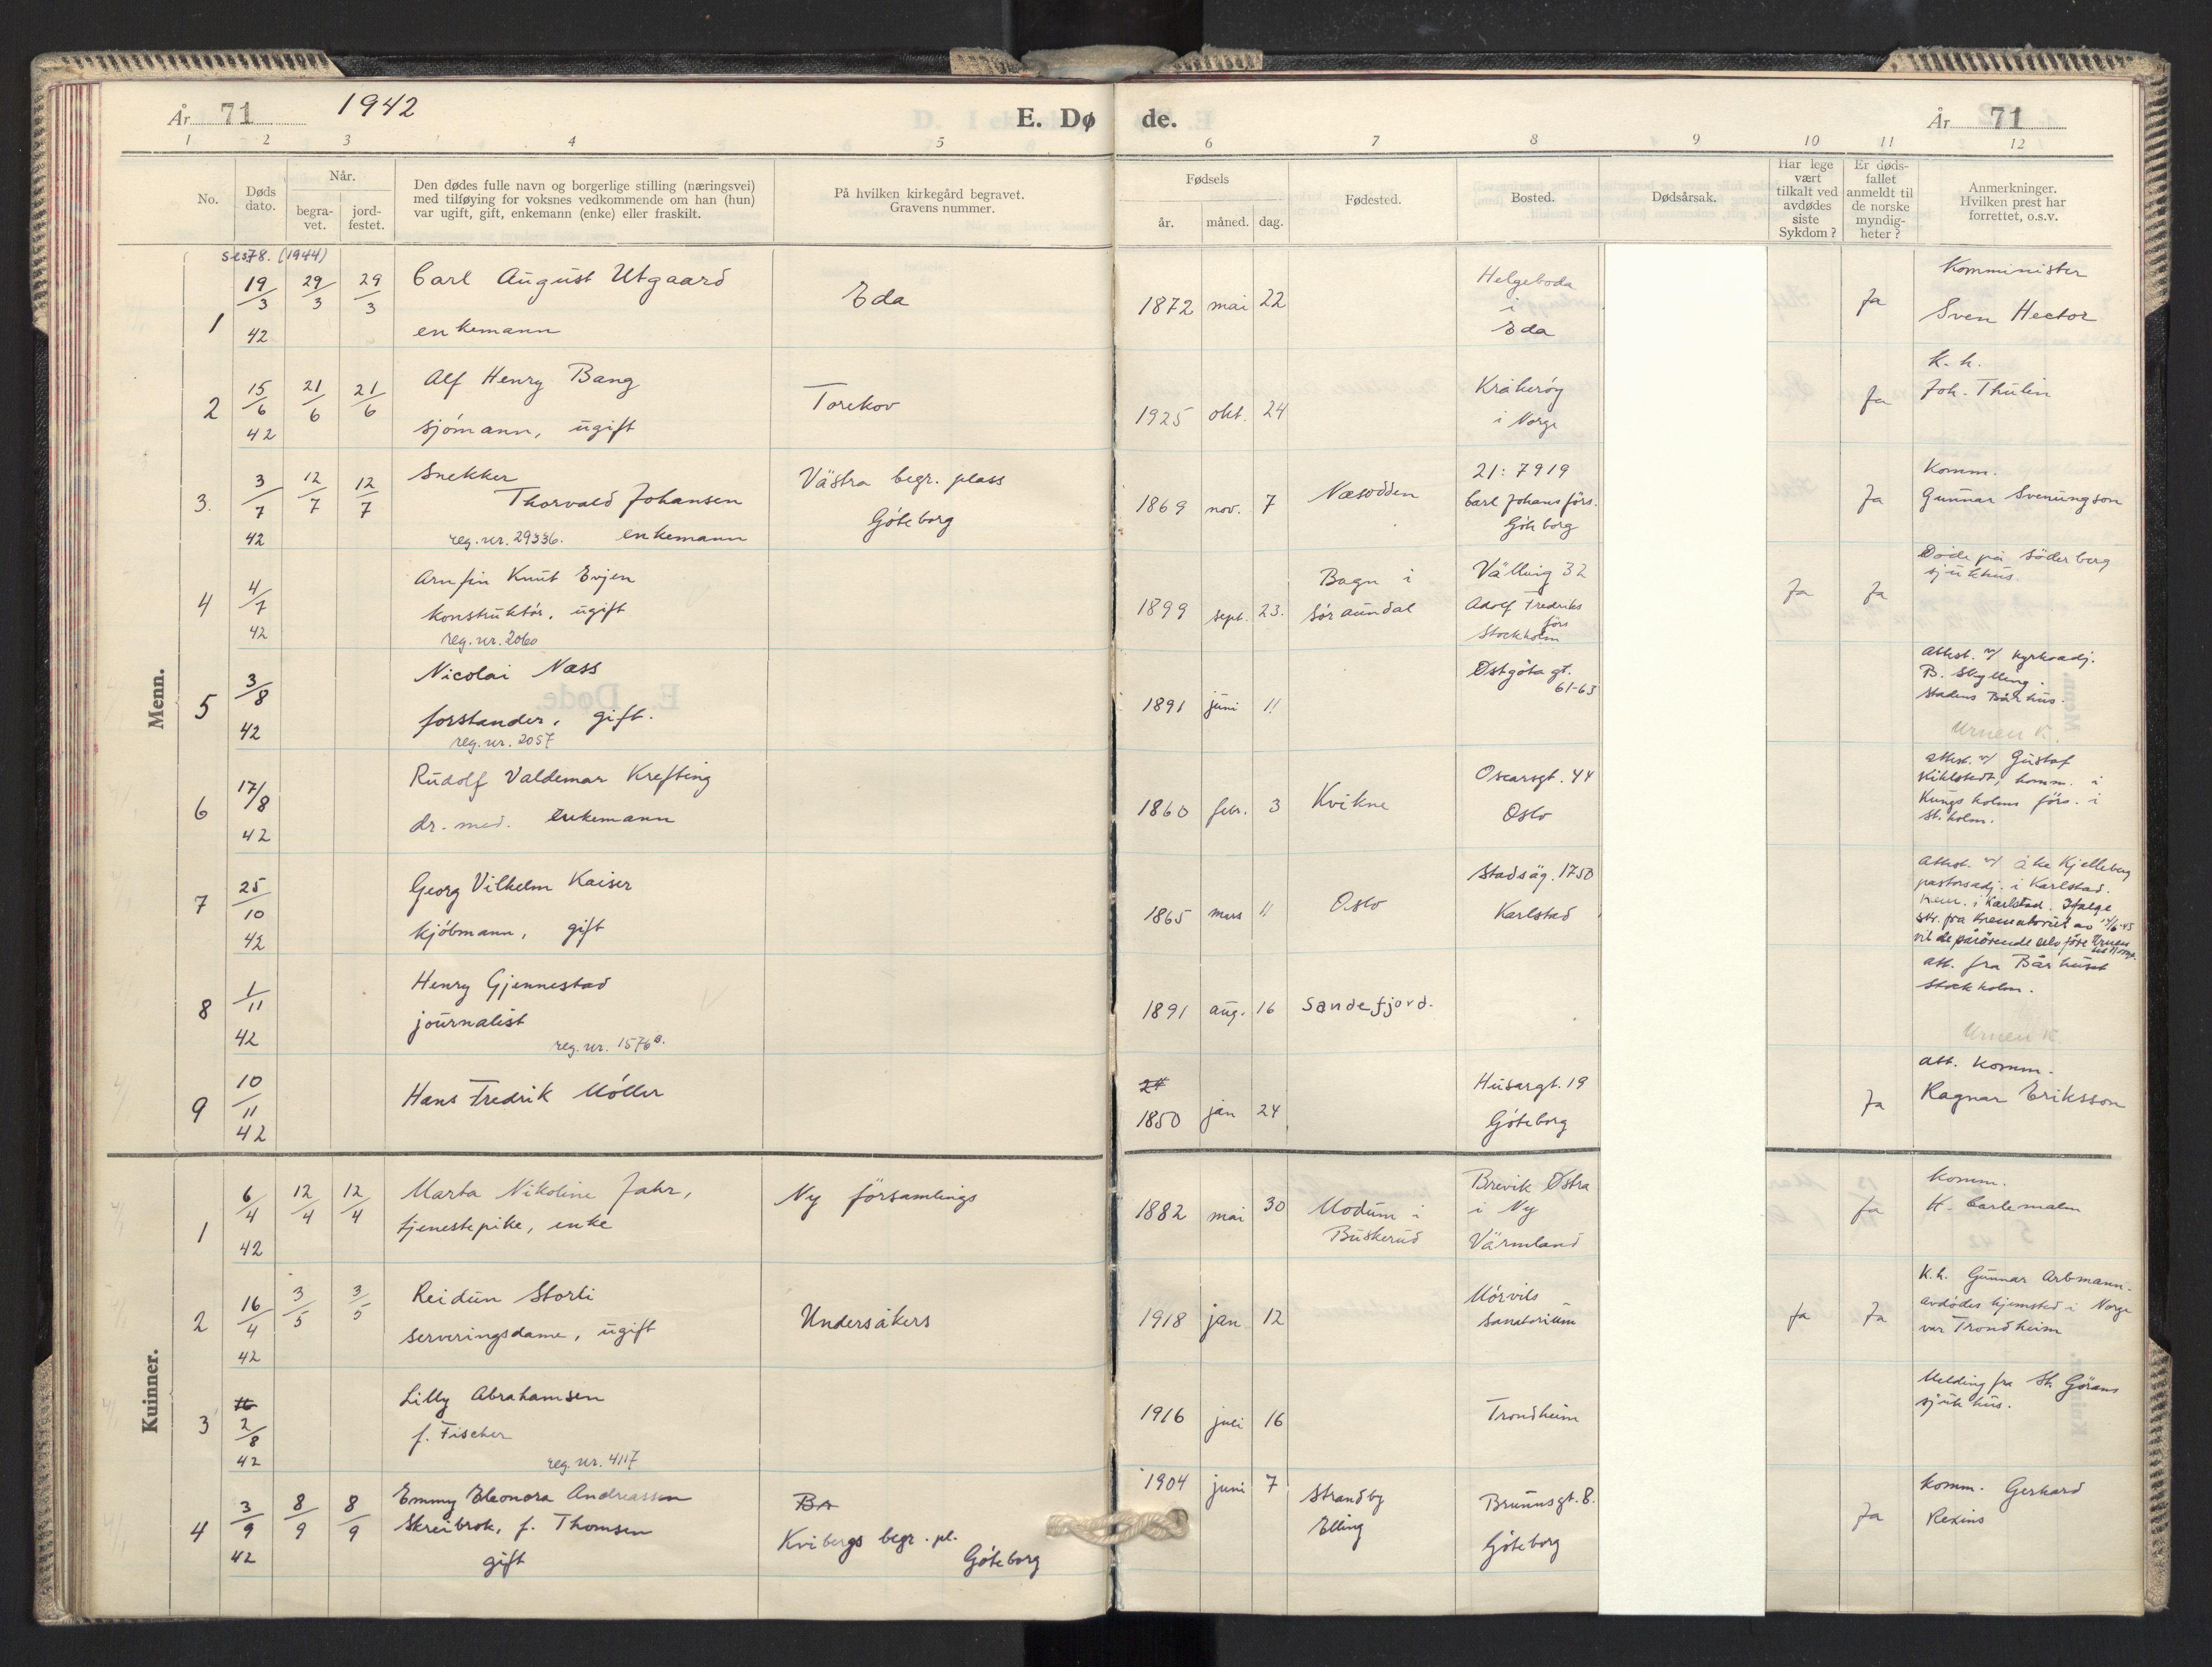 År 71 1942 E. Døde. År 71
1 2 3 4 5 6 7 8 9 10 11 12
No.
Døds dato.
Når.
begra-
vet.
jord-
festet.
Den dødes fulle navn og borgerlige stilling (næringsvei)
med tilføying for voksnes vedkommende om han (hun)
var ugift, gift, enkemann (enke) eller fraskilt.
På hvilken kirkegård begravet.
Gravens nummer.
Fødsels
år. måned. dag.
Fødested.
Bosted.
Dødsårsak.
Har lege
vært
tilkalt ved
avdødes
siste
Sykdom?
Er døds-
fallet
anmeldt til
de norske
myndig-
heter?
Anmerkninger.
Hvilken prest har
forrettet, o.s.v.
Menn.
(1944)
1 19/3 42 29/3 29/3
Carl August Utgaard
enkemann
Eda
1872 mai 22
Helgeboda
i
Eda
Ja
Komminister
Sven Hector
2 15/6 42 21/6 21/6
Alf Henry Bang
sjømann, ugift
Torekov
1925 okt. 24
Kråkerøy
i Norge
Ja
k. h.
Joh. Thulin
3. 3/7 42 12/7 12/7
Snekker
Thorvald Johansen
reg. nr. 29336. enkemann
Västra begr. plass
Göteborg
1869 nov. 7
Næsodden
21: 7919
Carl Johans förs.
Göteborg
Ja
Komm.
Gunnar Svenungson
4 4/7 42
Arnfin Knut Evjen
konstruktør, ugift
reg. nr. 2060
1899 sept. 23.
Bagn i
Sør Aurdal
32
Adolf Fredriks
förs
Stockholm
Ja Ja
Døde på Söderberg
sjukhus.
5 3/8 42
Nicolai Næss
forstander, gift.
reg. nr. 2057
1891 juni 11
Østgøta gt.
61-63
attest. v/ kyrkoadj.
B. Skylling.
Stadens Bårhus.
Urnen
6 17/8 42
Rudolf Valdemar Krefting
dr. med. Enkemann
1860 febr. 3
Kvikne
Oscarsgt. 44
Oslo
attest. v/ Gustaf
Kihlstedt, komm. i
Kungsholms förs. i
St.holm.
7 25/10 42
Georg Vilhelm Kaiser
kjøbmann, gift
1865 mars 11
Oslo
Stadsäg. 1750
Karlstad
Attest. v/ Åke Kjelleberg
pastorsadj. i Karlstad.
Krem. i Karlstad. Ifølge
skr. fra Krematoriet av
vil de pårørende selv føre Urnen
til Norge.
8 1/11 42
Henry Gjennestad
journalist
reg. nr. 1576
1891 aug. 16
Sandefjord.
att. fra Bårhuset
Stockholm.
Urnen
9 10/11 42
Hans Fredrik Møller
24
1850 jan 24
Husargt. 19
Göteborg
Ja
att. komm.
Ragnar Eriksson
Kvinner.
1 6/4 42 12/4 12/4
Marta Nikoline Jahr,
tjenestepike, enke
Ny församlings
1882 mai 30
Modum i
Buskerud
Brevik Østra
i Ny
Värmland
Ja
Komm.
H. Carlemalm
2 16/4 42 3/5 3/5
Reidun Storli
serveringsdame, ugift
Undersåkers
1918 jan 12
Mörvils
sanatorium
Ja Ja
K.h. Gunnar Arbmann.
avdødes hjemsted i Norge
var Trondheim
3 16 2/8 42
Lilly Abrahamsen
f. Fischer
reg. nr. 4117
1916 juli 16
Trondheim
Melding fra St. Görans
sjukhus.
4 3/9 42 8/9 8/9
Emmy Eleonora Andreassen
Skreibrok, f. Thomsen
gift
BA
Kvibergs begr. pl.
Göteborg
1904 juni 7
Strandby
Elling
Brunnsgt. 8.
Göteborg
Ja
komm. Gerhard
Rexius